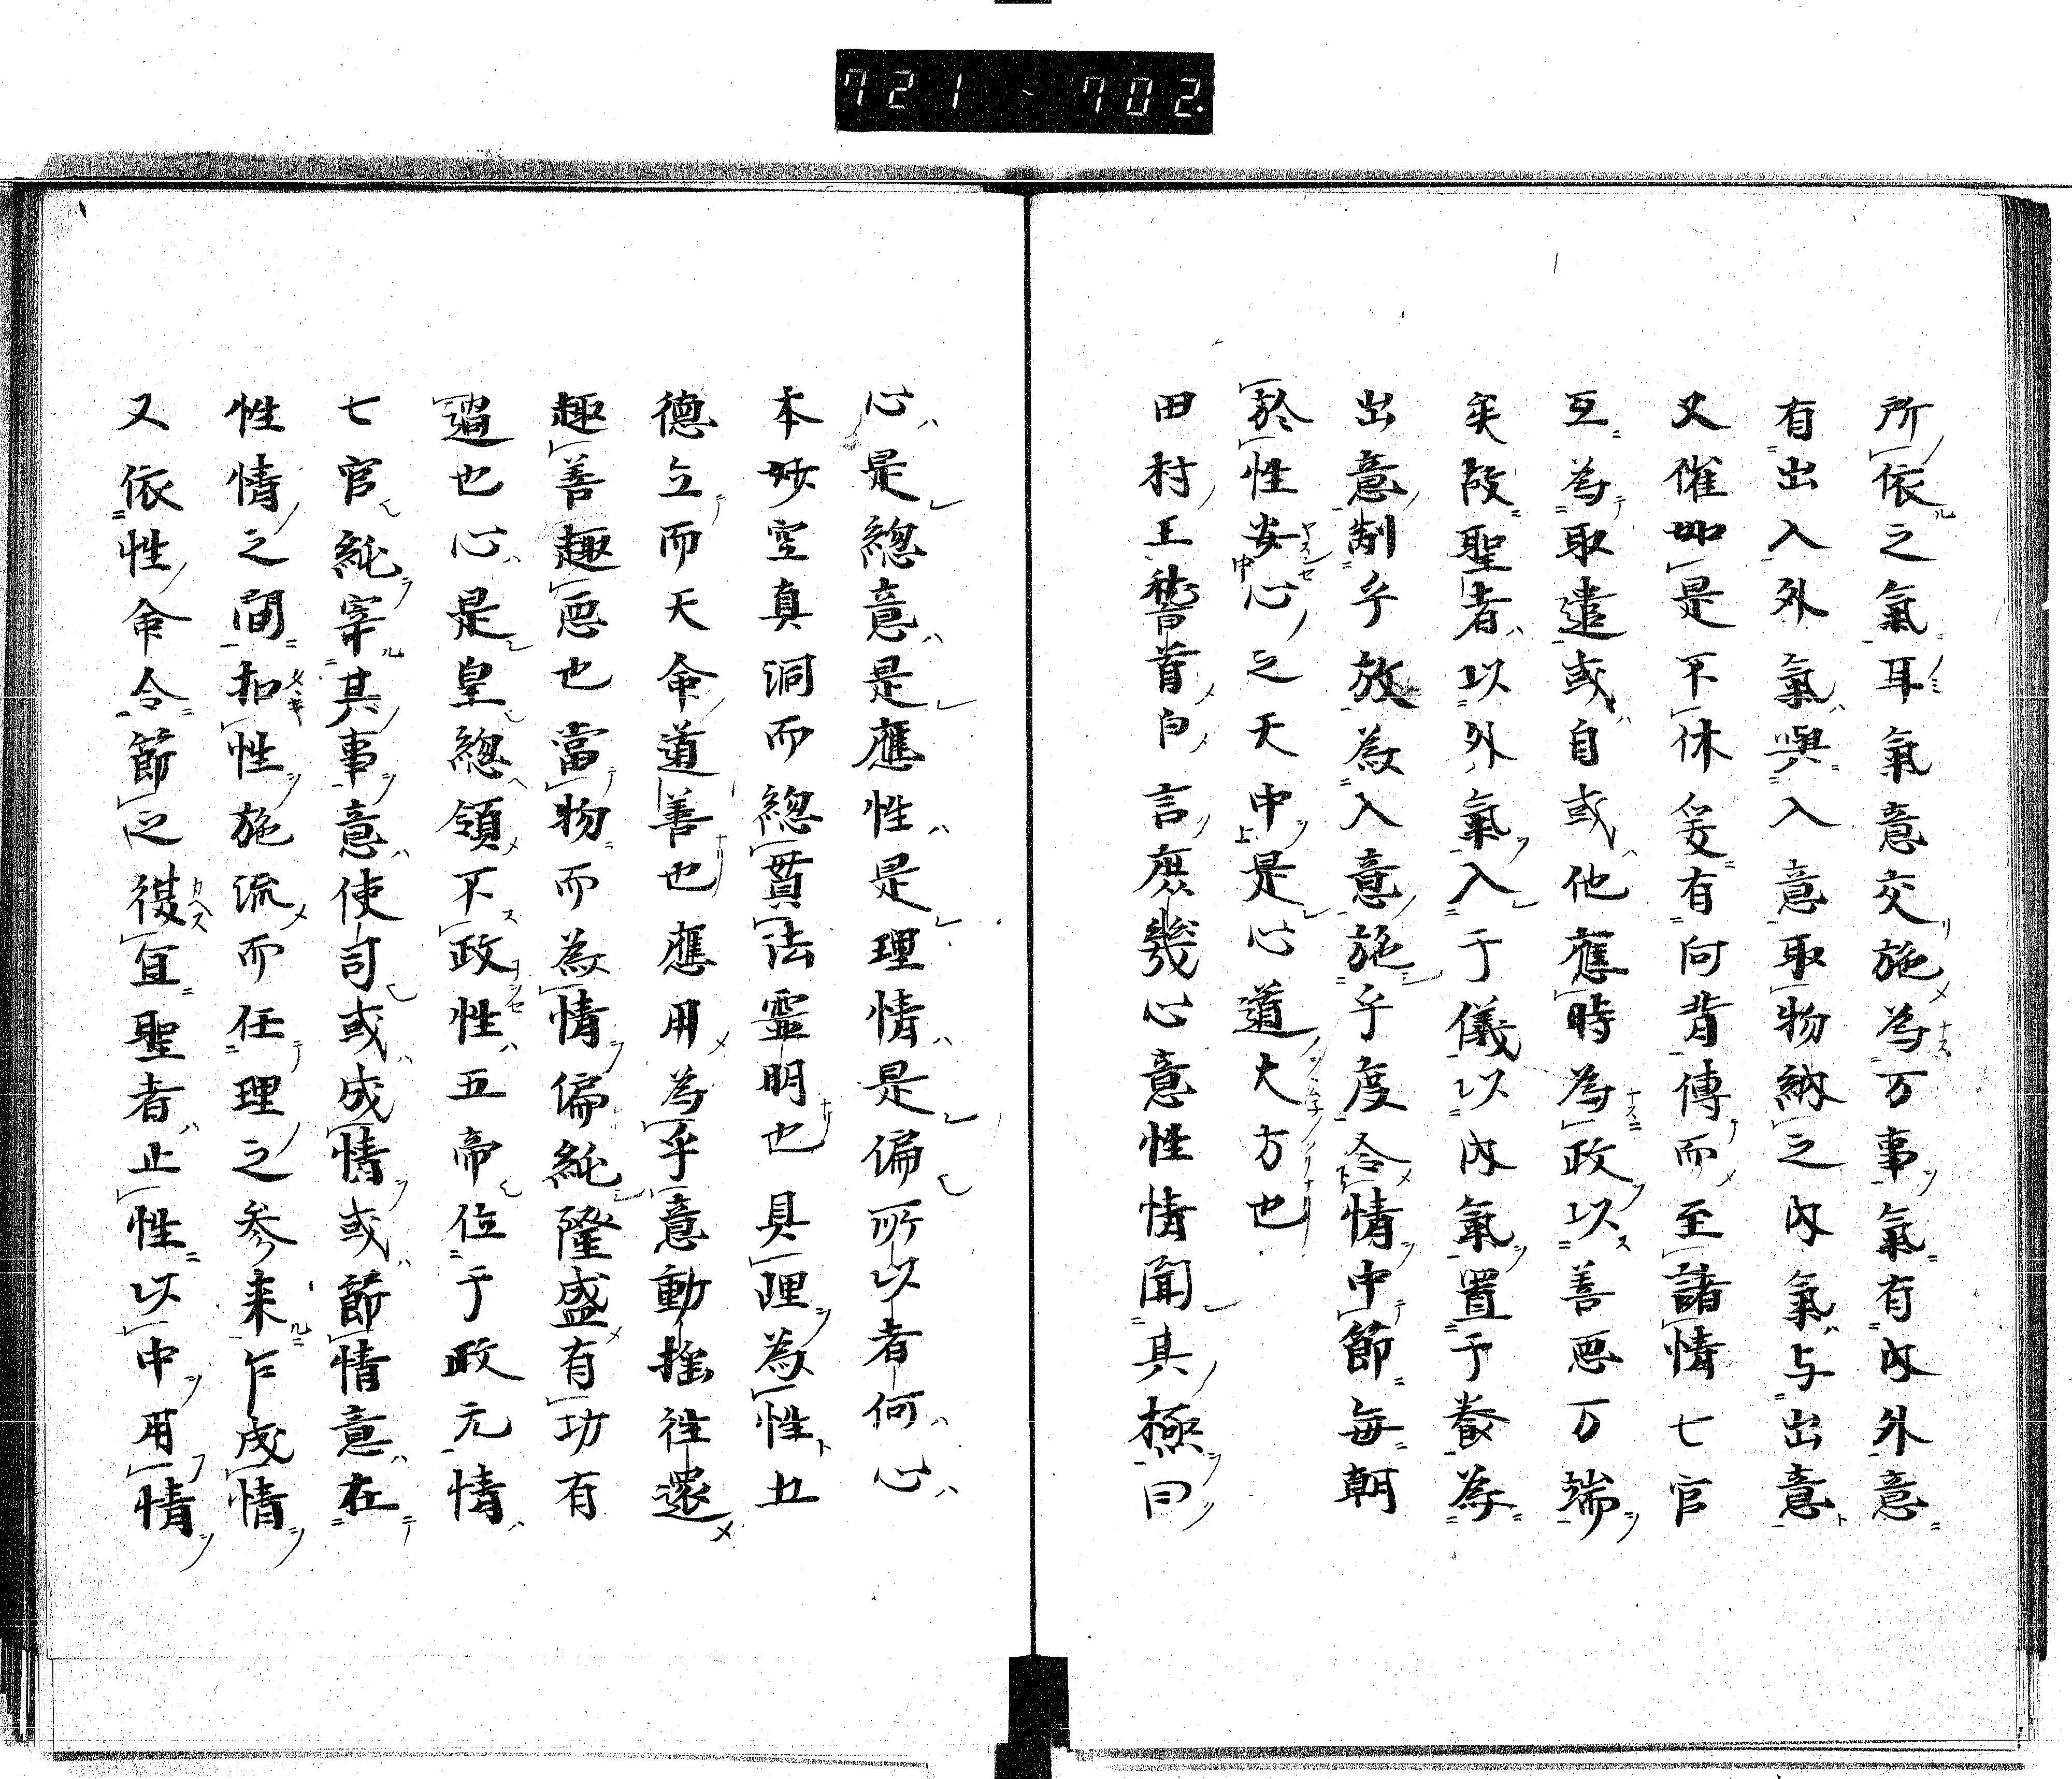 721、702.
所依之氣耳氣意交施為万事氣有內外意
有出入外氣與入意取物納之內氣与出意
又催如是不休爰有向背傳而至諸情七官
互為取遣或自或他應時為政以善惡万端
矣故聖者以外氣入于儀以內氣置于養為
出意制乎放為入意施乎度令情中節每朝
於性安心之天中是心道大方也
田村王稽首白言庶幾心意性情聞其極曰
心是總意是應性是理情是偏所以者何心
本妙空真洞而總貫法靈明也具理為性五
德立而天命道善也應用為乎意動搖往還
趣善趣惡也當物而為情偏純隆盛有功有
過也心是皇總領不政性五帝位于政元情
七官純宰其事意使司或成情或節情意在
性情之間扣性施流而任理之参来乍成情
又依性命令節之復宜聖者止性以中用情